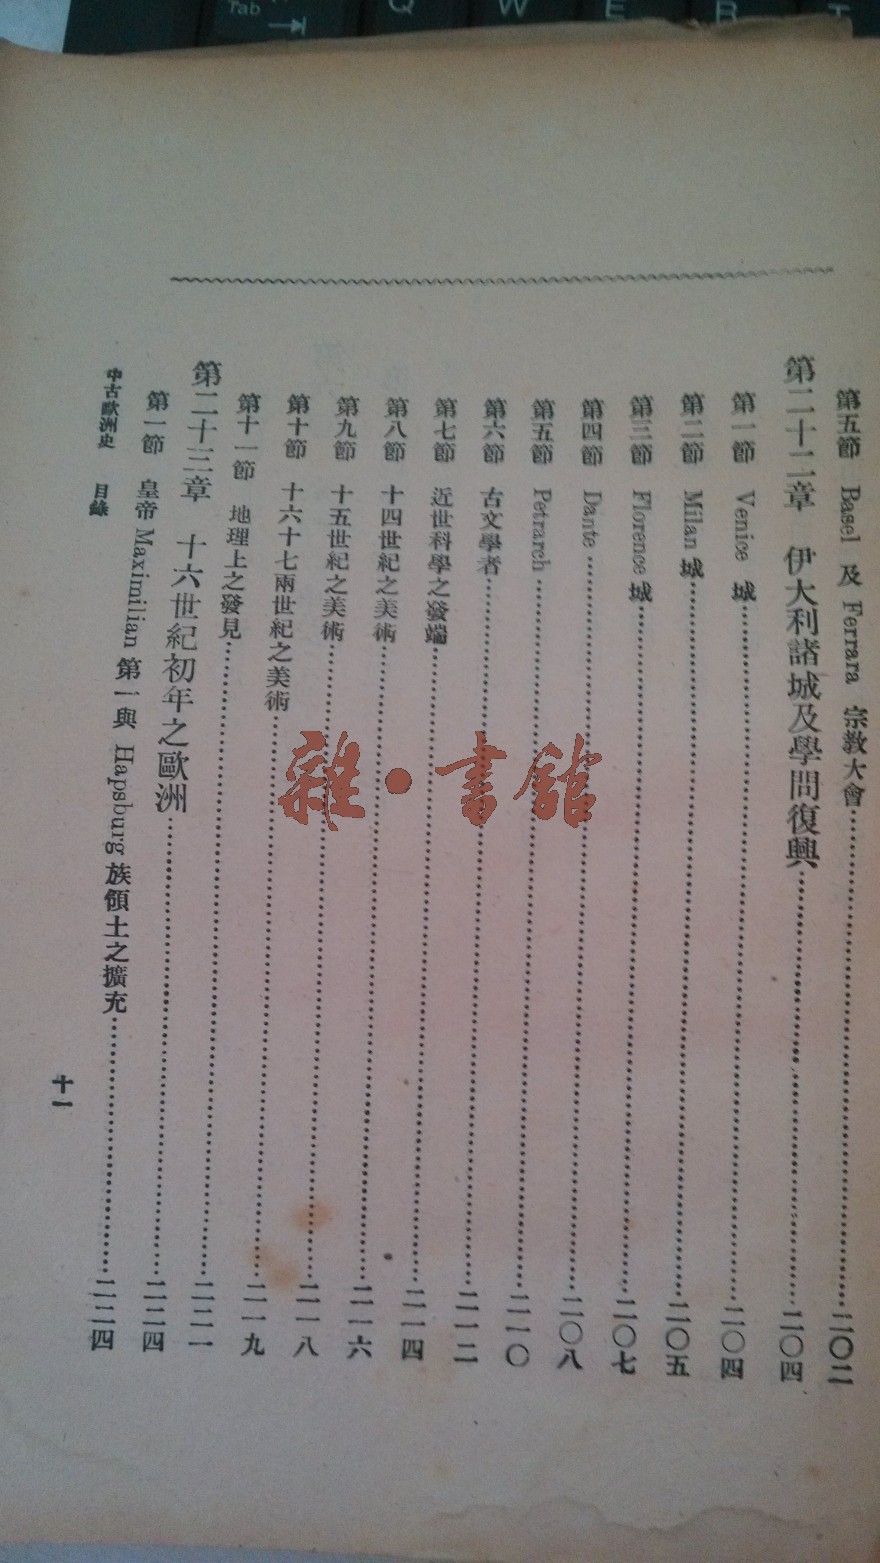 第五節 Basel 及 Ferrara 宗教大會……二〇二
第二十二章 伊大利諸城及學問復興……二〇四
第一節 Venice 城……二〇四
第二節 Milan 城……二〇五
第三節 Florence 城……二〇七
第四節 Dante……二〇八
第五節 Petrarch……二一〇
第六節 古文學者……二一二
第七節 近世科學之發端……二一四
第八節 十四世紀之美術……二一六
第九節 十五世紀之美術……二一八
第十節 十六十七兩世紀之美術……二一九
第十一節 地理上之發見……二二一
第二十三章 十六世紀初年之歐洲……二二四
第一節 皇帝 Maximilian 第一與 Hapsburg 族領土之擴充……二二四
中古歐洲史 目錄
十一
雜·書館
Tab
Q
W
E